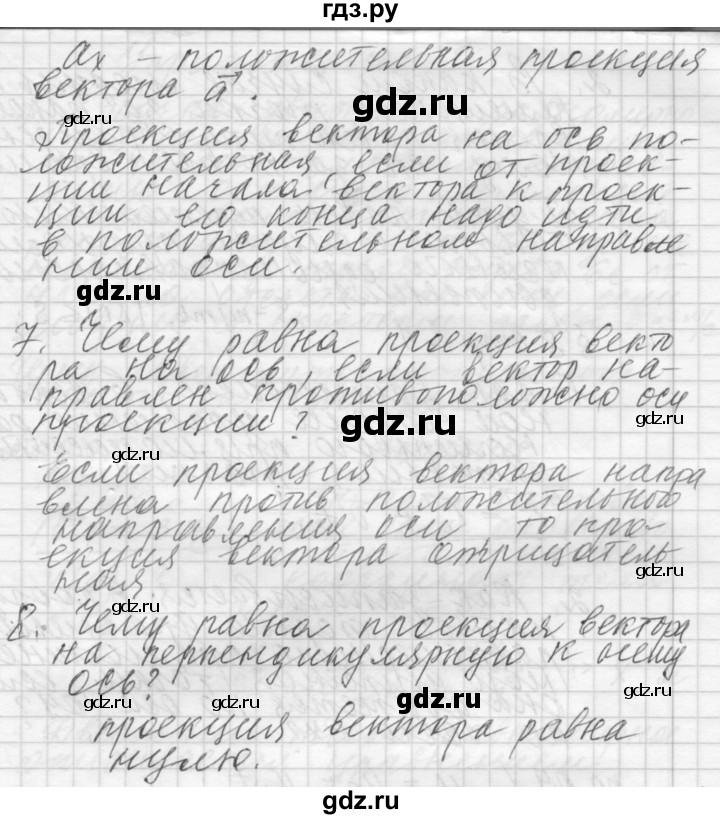 гдз.ру
aₓ – положительная проекция
вектора a⃗.
gdz.ru
Проекция вектора на ось по-
ложительная, если от проек-
ции начала вектора к проек-
ции его конца надо идти
в положительном направле
нии оси.
gdz.ru
7. Чему равна проекция векто
ра на ось, если вектор на-
правлен противоположно оси
проекции?
gdz.ru
gdz.ru
gdz.ru
Если проекция вектора напра
влена против положительного
направления оси, то про-
екция вектора отрицатель
ная
gdz.ru
gdz.ru
8. Чему равна проекция вектора
на перпендикулярную к нему
ось?
gdz.ru
gdz.ru
gdz.ru
gdz.ru
проекция вектора равна
нулю.
gdz.ru